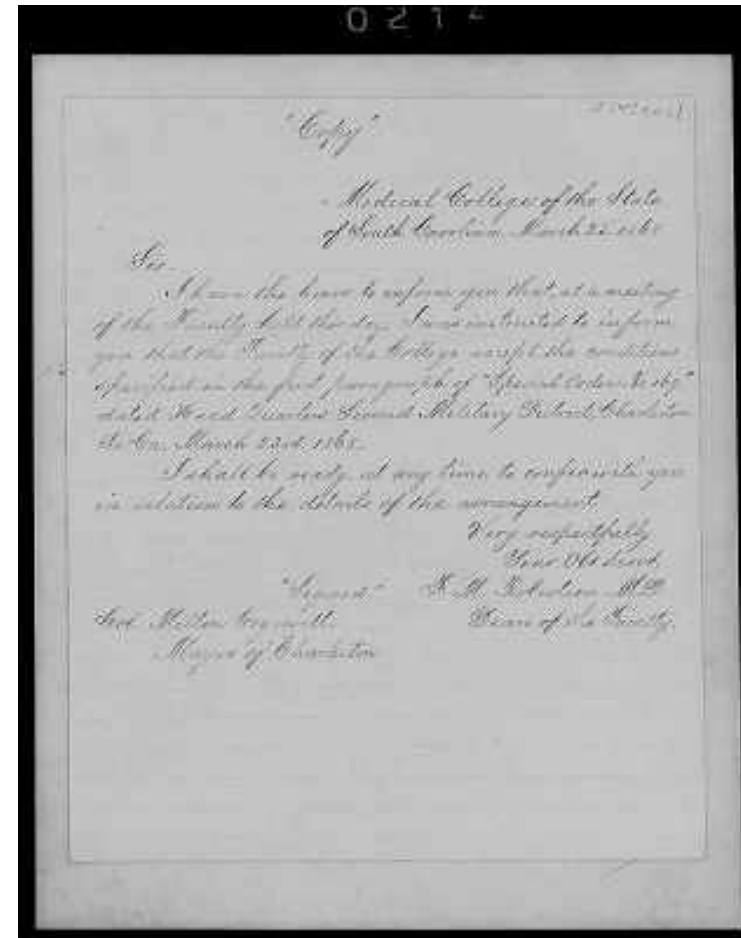 021
"Copy"
Medical College of the State
of South Carolina March 25 186
Sir.
I have the honor to inform you that, at a meeting
of the Faculty held this day I was instructed to inform
you that the Faculty of the College accept the conditions
specified in the first paragraph of "Special Orders No
dated Head Quarters Second Military District, Charleston
So. Ca. March 23rd. 1868.
I shall be ready at any time to confer with you
in relation to the details of the arrangement.
Very respectfully
Your Obt Servt.
"Signed" F. M. Robertson M.D.
Milton Cogswell. Dean of the Faculty.
Mayor of Charleston